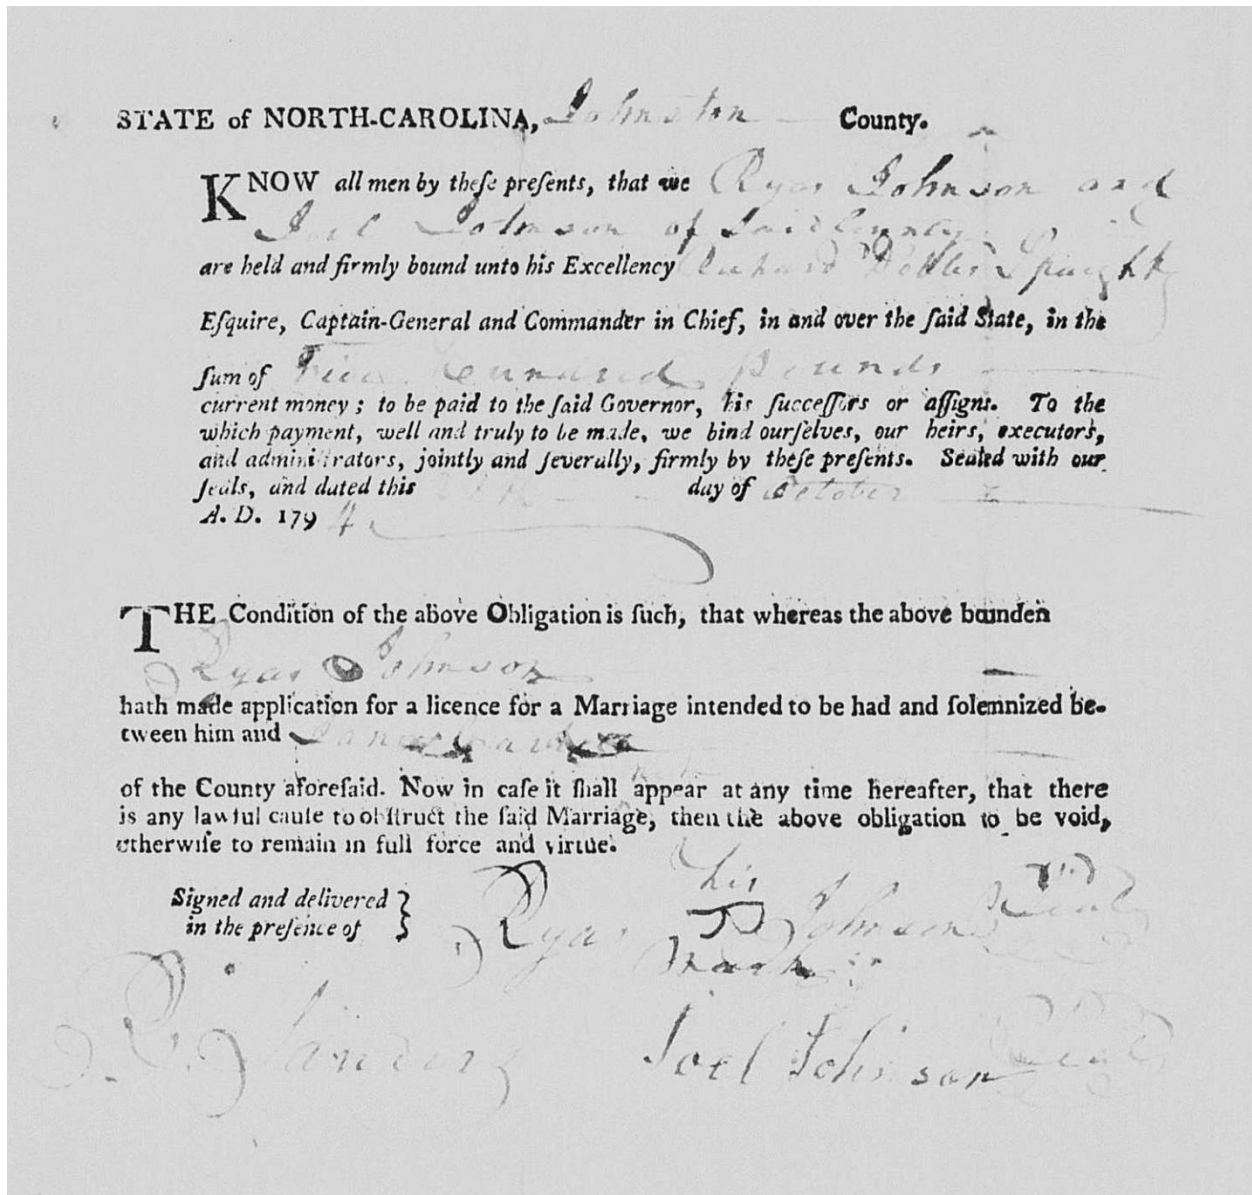 STATE of NORTH-CAROLINA, Johnston County.
KNOW all men by theſe preſents, that we Ryas Johnson and
Joel Johnson of Said County
are held and firmly bound unto his Excellency Richard Dobbs Spaight
Eſquire, Captain-General and Commander in Chief, in and over the ſaid State, in the
ſum of Five Hundred Pounds
current money; to be paid to the ſaid Governor, his ſucceſſors or aſſigns. To the
which payment, well and truly to be made, we bind ourſelves, our heirs, executors,
and adminiſtrators, jointly and ſeverally, firmly by theſe preſents. Sealed with our
ſeals, and dated this day of October
A. D. 1794
THE Condition of the above Obligation is ſuch, that whereas the above bounden
Ryas Johnson
hath made application for a licence for a Marriage intended to be had and ſolemnized be-
tween him and
of the County aforeſaid. Now in caſe it ſhall appear at any time hereafter, that there
is any lawful cauſe to obſtruct the ſaid Marriage, then the above obligation to be void,
otherwiſe to remain in full force and virtue.
Signed and delivered
in the preſence of
his
Ryas Johnson Seal
mark
R. Sanders
Joel Johnson Seal